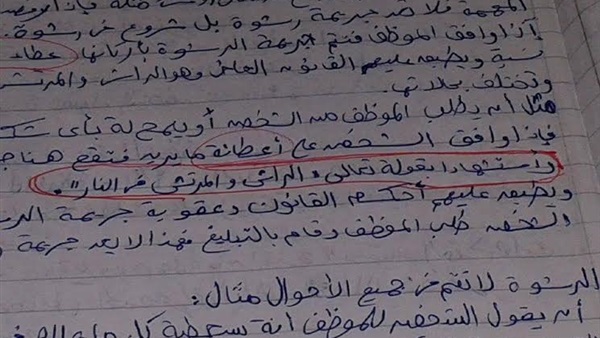 المهمة فلا تعد جريمة رشوة بل شروع في رشوة.
إذا وافق الموظف فتتم جريمة الرشوة بأركانها عطاء
ويطبق عليهم القانون العام وهو الراشي والمرتشى
وتختلف بذاتها.
مثل أن يطلب الموظف من الشخص أو يسمح له بأى
فإذا وافق الشخص على أعطائة ما يريد فتقع هنا
وأستشهادا بقولة تعالى "الراشى والمرتشى فى النار".
ويطبق عليهم أحكام القانون وعقوبة جريمة
الشخص طلب الموظف وقام بالتبليغ فهذا لا يعد جريمة
الرشوة لا تتم فى جميع الأحوال مثال:
أن يقول الشخص للموظف أنة سيعطية كل